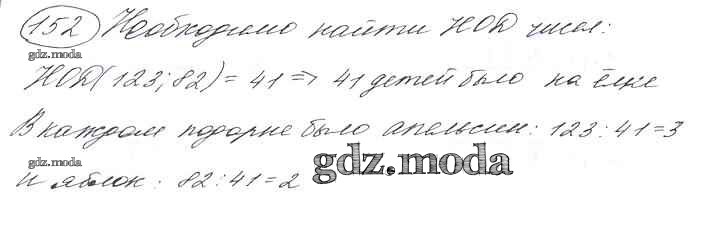 152 Необходимо найти НОД чисел:
gdz.moda
НОД(123;82)=41=> 41 детей было на ёлке
В каждом подарке было апельсин: 123:41=3
gdz.moda
и яблок: 82:41=2
gdz.moda